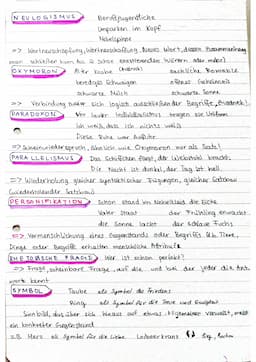 NEULOGISMUS Berufsjugendliche
Umparken im Kopf
Nebelspinne
=> Wortneuschöpfung, Wortneuschaffung
OXYMORON Alter Knabe
beredtes Schweigen offenes Geheimnis
schwarze Milch schwarze Sonne
=> Verbindung zweier sich logisch ausschließender Begriffe
PARADOXON Vor lauter Individualismus tragen sie Uniform
Ich weiß, dass ich nichts weiß
Diese Ruhe war
=> Scheinwiderspruch, ähnlich wie Oxymoron nur als Satz!
PARALLELISMUS Das Schiffchen fliegt, der Webstuhl kracht.
Die Nacht ist dunkel, der Tag ist hell.
=> Wiederholung gleicher syntaktischer Fügungen, gleicher Satzbau
(wiederkehrender Satzbau)
PERSONIFIKATION Schon stand im Nebelkleid die Eiche
Vater Staat der Frühling erwacht
die Sonne lacht der schlaue Fuchs
=> Vermenschlichung eines Gegenstands oder Begriffs
Dinge oder Begriffe erhalten menschliche Attribute
RHETORISCHE FRAGE Wer ist schon perfekt?
=> Frage, scheinbare Frage, auf die jeder die Ant-
wort kennt
SYMBOL Taube als Symbol des Friedens
Ring als Symbol für die Treue und Ewigkeit
Sinnbild, das über sich hinaus auf etwas Allgemeines verweist, meist
ein konkreter Gegenstand
z.B. Herz als Symbol für die Liebe